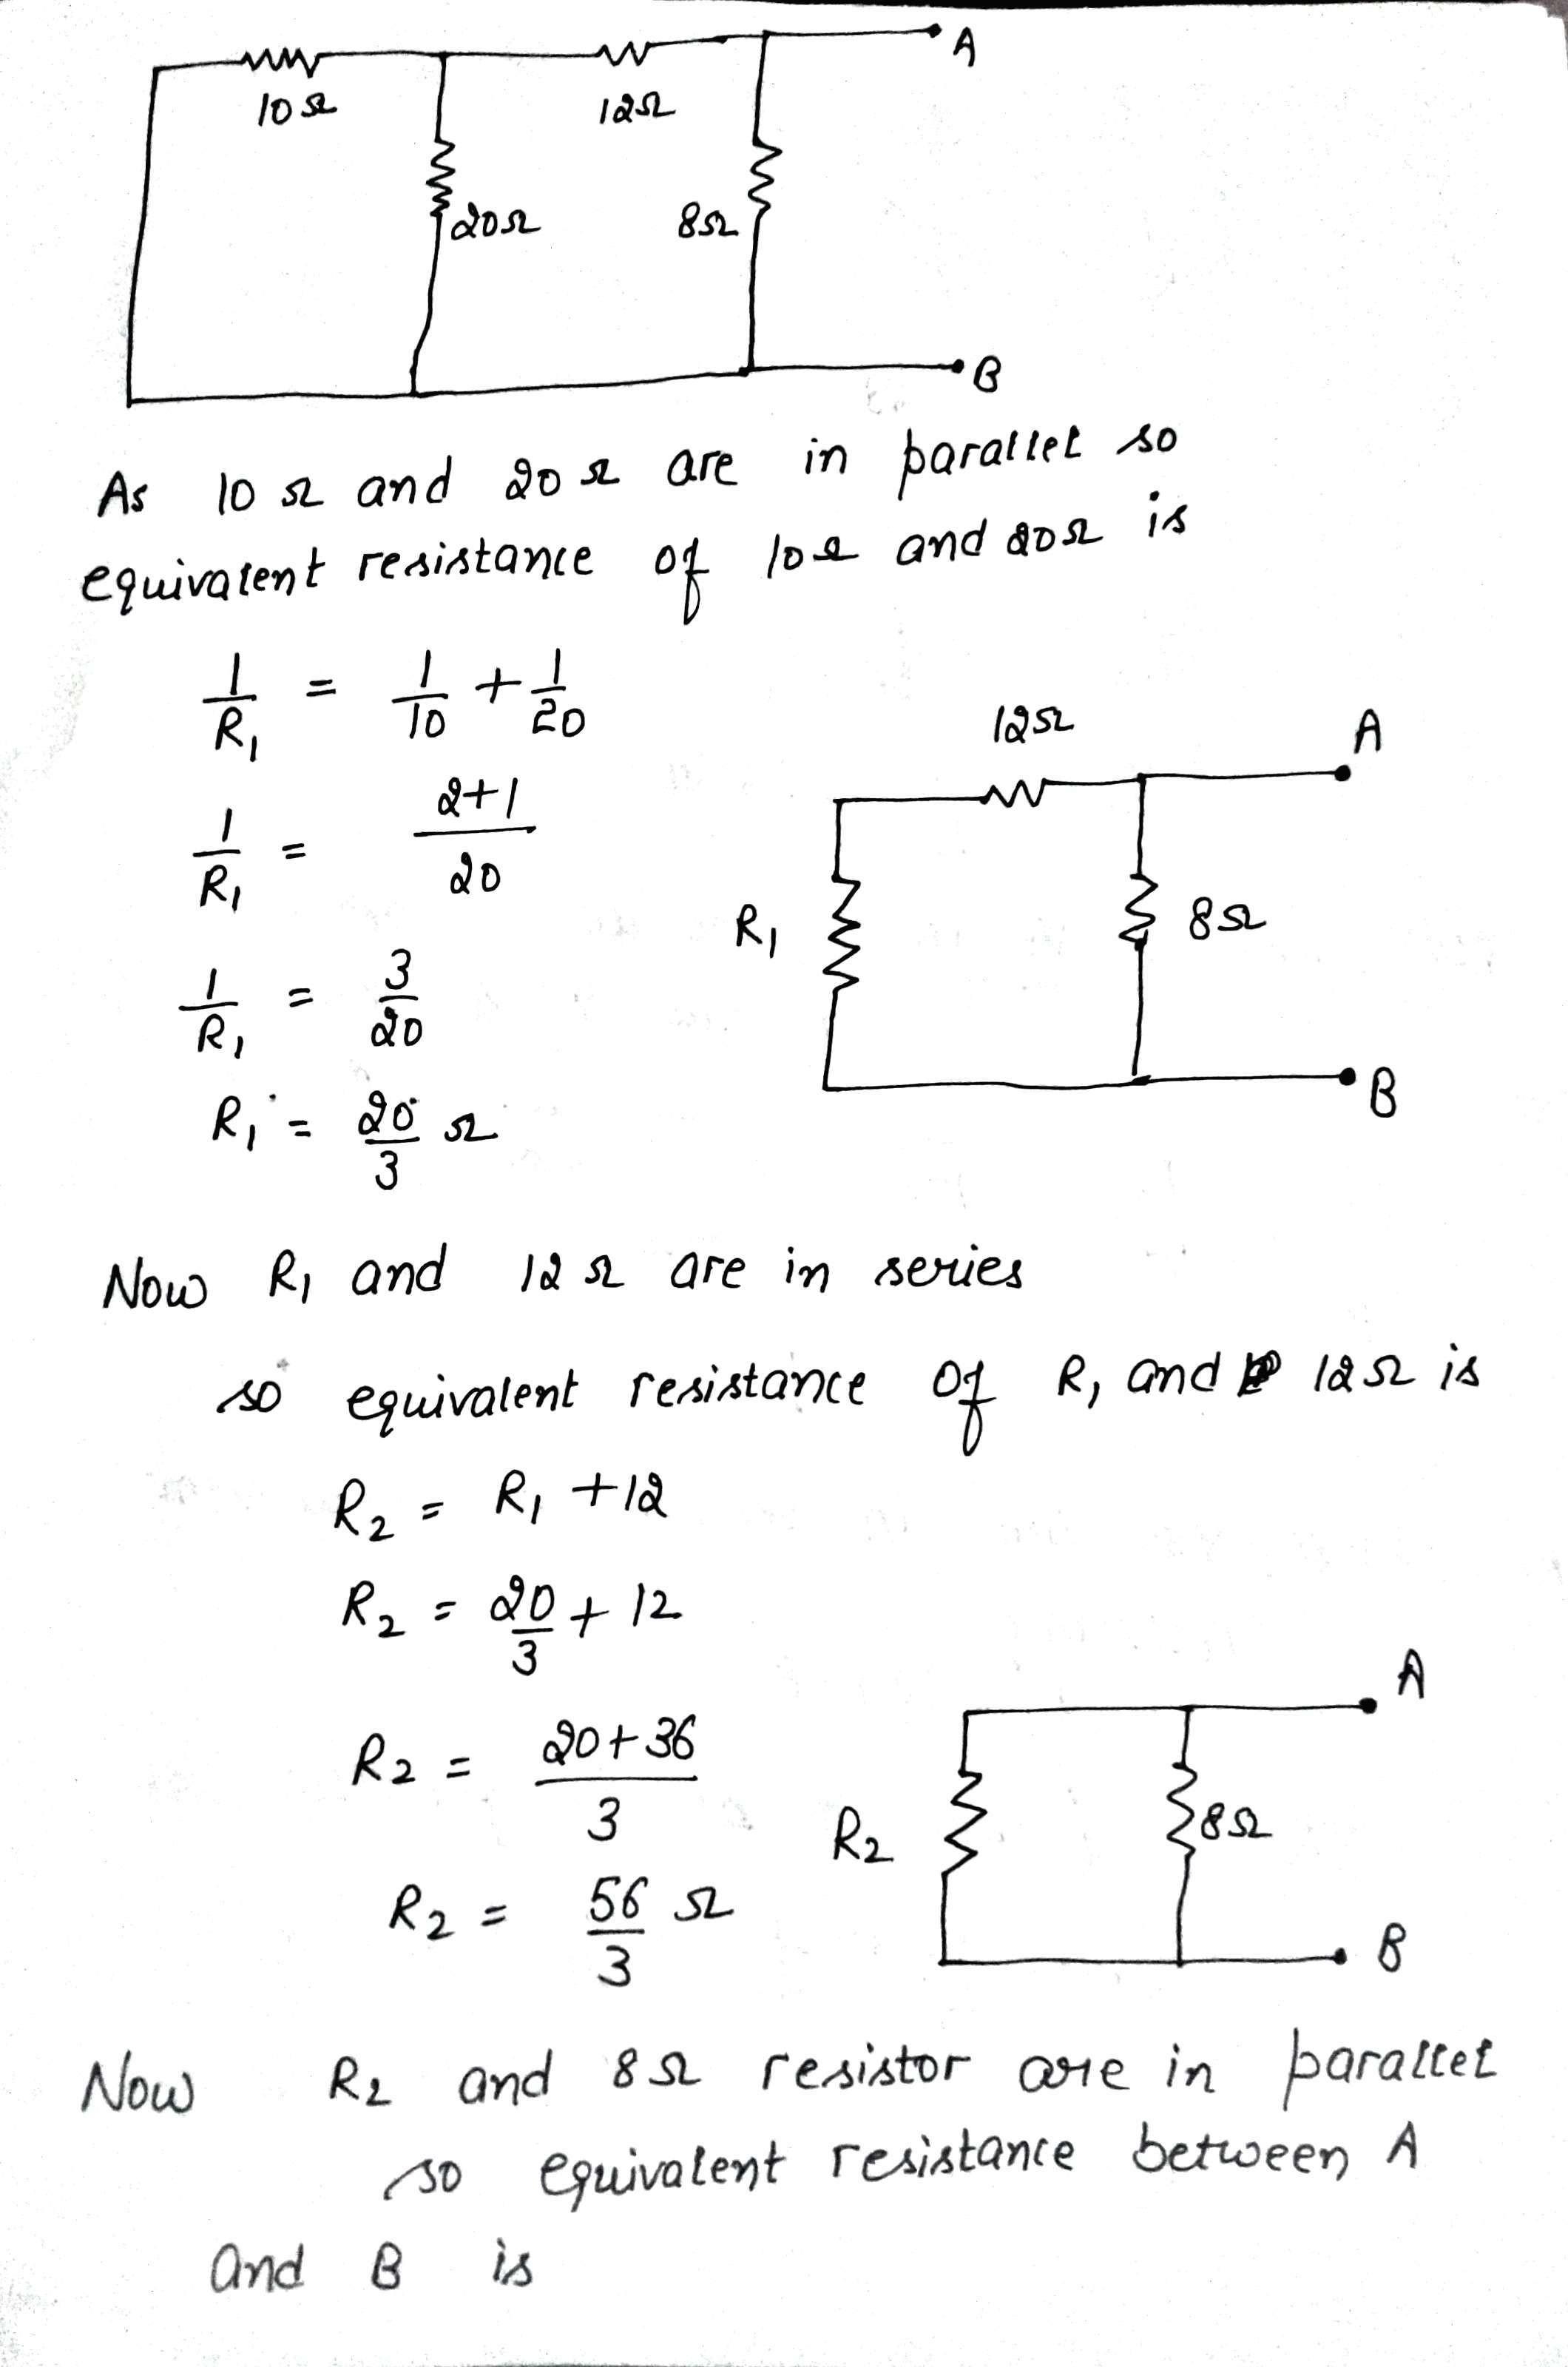 A
10Ω
12Ω
20Ω
8Ω
B
As 10Ω and 20Ω are in parallel so
equivalent resistance of 10Ω and 20Ω is
1/R₁ = 1/10 + 1/20
12Ω
A
1/R₁ = (2+1)/20
R₁
8Ω
1/R₁ = 3/20
B
R₁ = 20/3 Ω
Now R₁ and 12Ω are in series
so equivalent resistance of R₁ and 12Ω is
R₂ = R₁ + 12
R₂ = 20/3 + 12
A
R₂ = (20+36)/3
R₂
8Ω
R₂ = 56/3 Ω
B
Now R₂ and 8Ω resistor are in parallel
so equivalent resistance between A
and B is